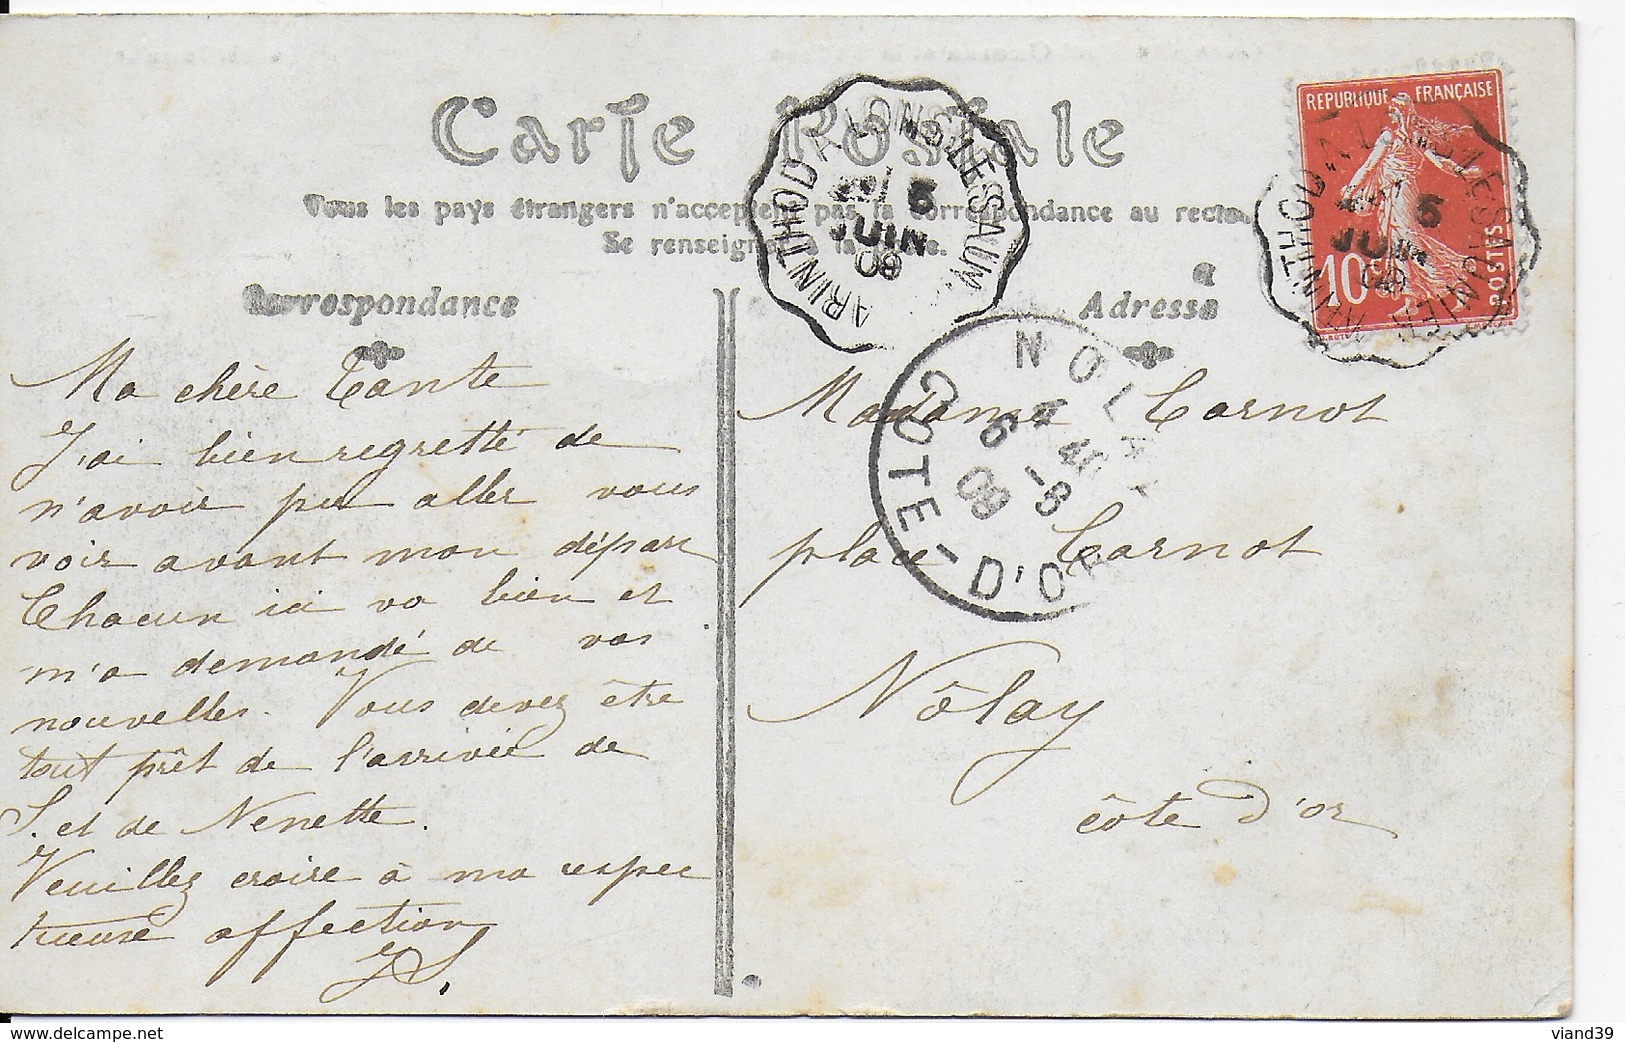 Carte Postale
Tous les pays étrangers n'acceptent pas la correspondance au recto
Se renseigner à la Poste.
Correspondance
Ma chère Tante
J'ai bien regretté de
n'avoir pu aller vous
voir avant mon départ
Chacun ici va bien et
m'a demandé de vos
nouvelles. Vous devez être
tout prêt de l'arrivée de
S. et de Nenette.
Veuillez croire à ma respec
tueuse affection
JS.
Adresse
Madame Carnot
place Carnot
Nôlay
côte d'or
ARINTHOD A LONS-LE-SAUNIER
5
JUIN
09
NOLAY
6 - 6
09
COTE-D'OR
REPUBLIQUE FRANÇAISE
10c
POSTES
ARINTHOD A LONS-LE-SAUNIER
5
JUIN
09
www.delcampe.net
viand39